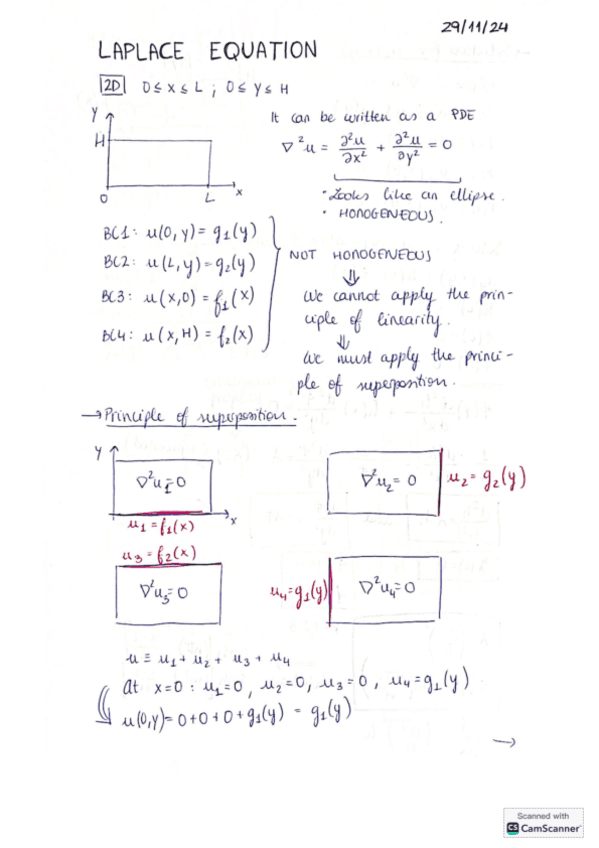 29/11/24
LAPLACE EQUATION
2D 0 ≤ x ≤ L ; 0 ≤ y ≤ H
It can be written as a PDE
∇²u = ∂²u/∂x² + ∂²u/∂y² = 0
Y
H
0
L
x
• Looks like an ellipse.
• HOMOGENEOUS.
BC1: u(0, y) = g₁(y)
BC2: u(L, y) = g₂(y)
BC3: u(x, 0) = f₁(x)
BC4: u(x, H) = f₂(x)
NOT HOMOGENEOUS
⇓
We cannot apply the prin-
ciple of linearity.
⇓
We must apply the princi-
ple of superposition.
→ Principle of superposition.
Y
∇²u₁ = 0
x
u₁ = f₁(x)
∇²u₂ = 0
u₂ = g₂(y)
u₃ = f₂(x)
∇²u₃ = 0
u₄ = g₁(y)
∇²u₄ = 0
u ≡ u₁ + u₂ + u₃ + u₄
At x=0 : u₁=0, u₂=0, u₃=0, u₄=g₁(y)
u(0,y) = 0+0+0+g₁(y) = g₁(y)
→
Scanned with
CS CamScanner